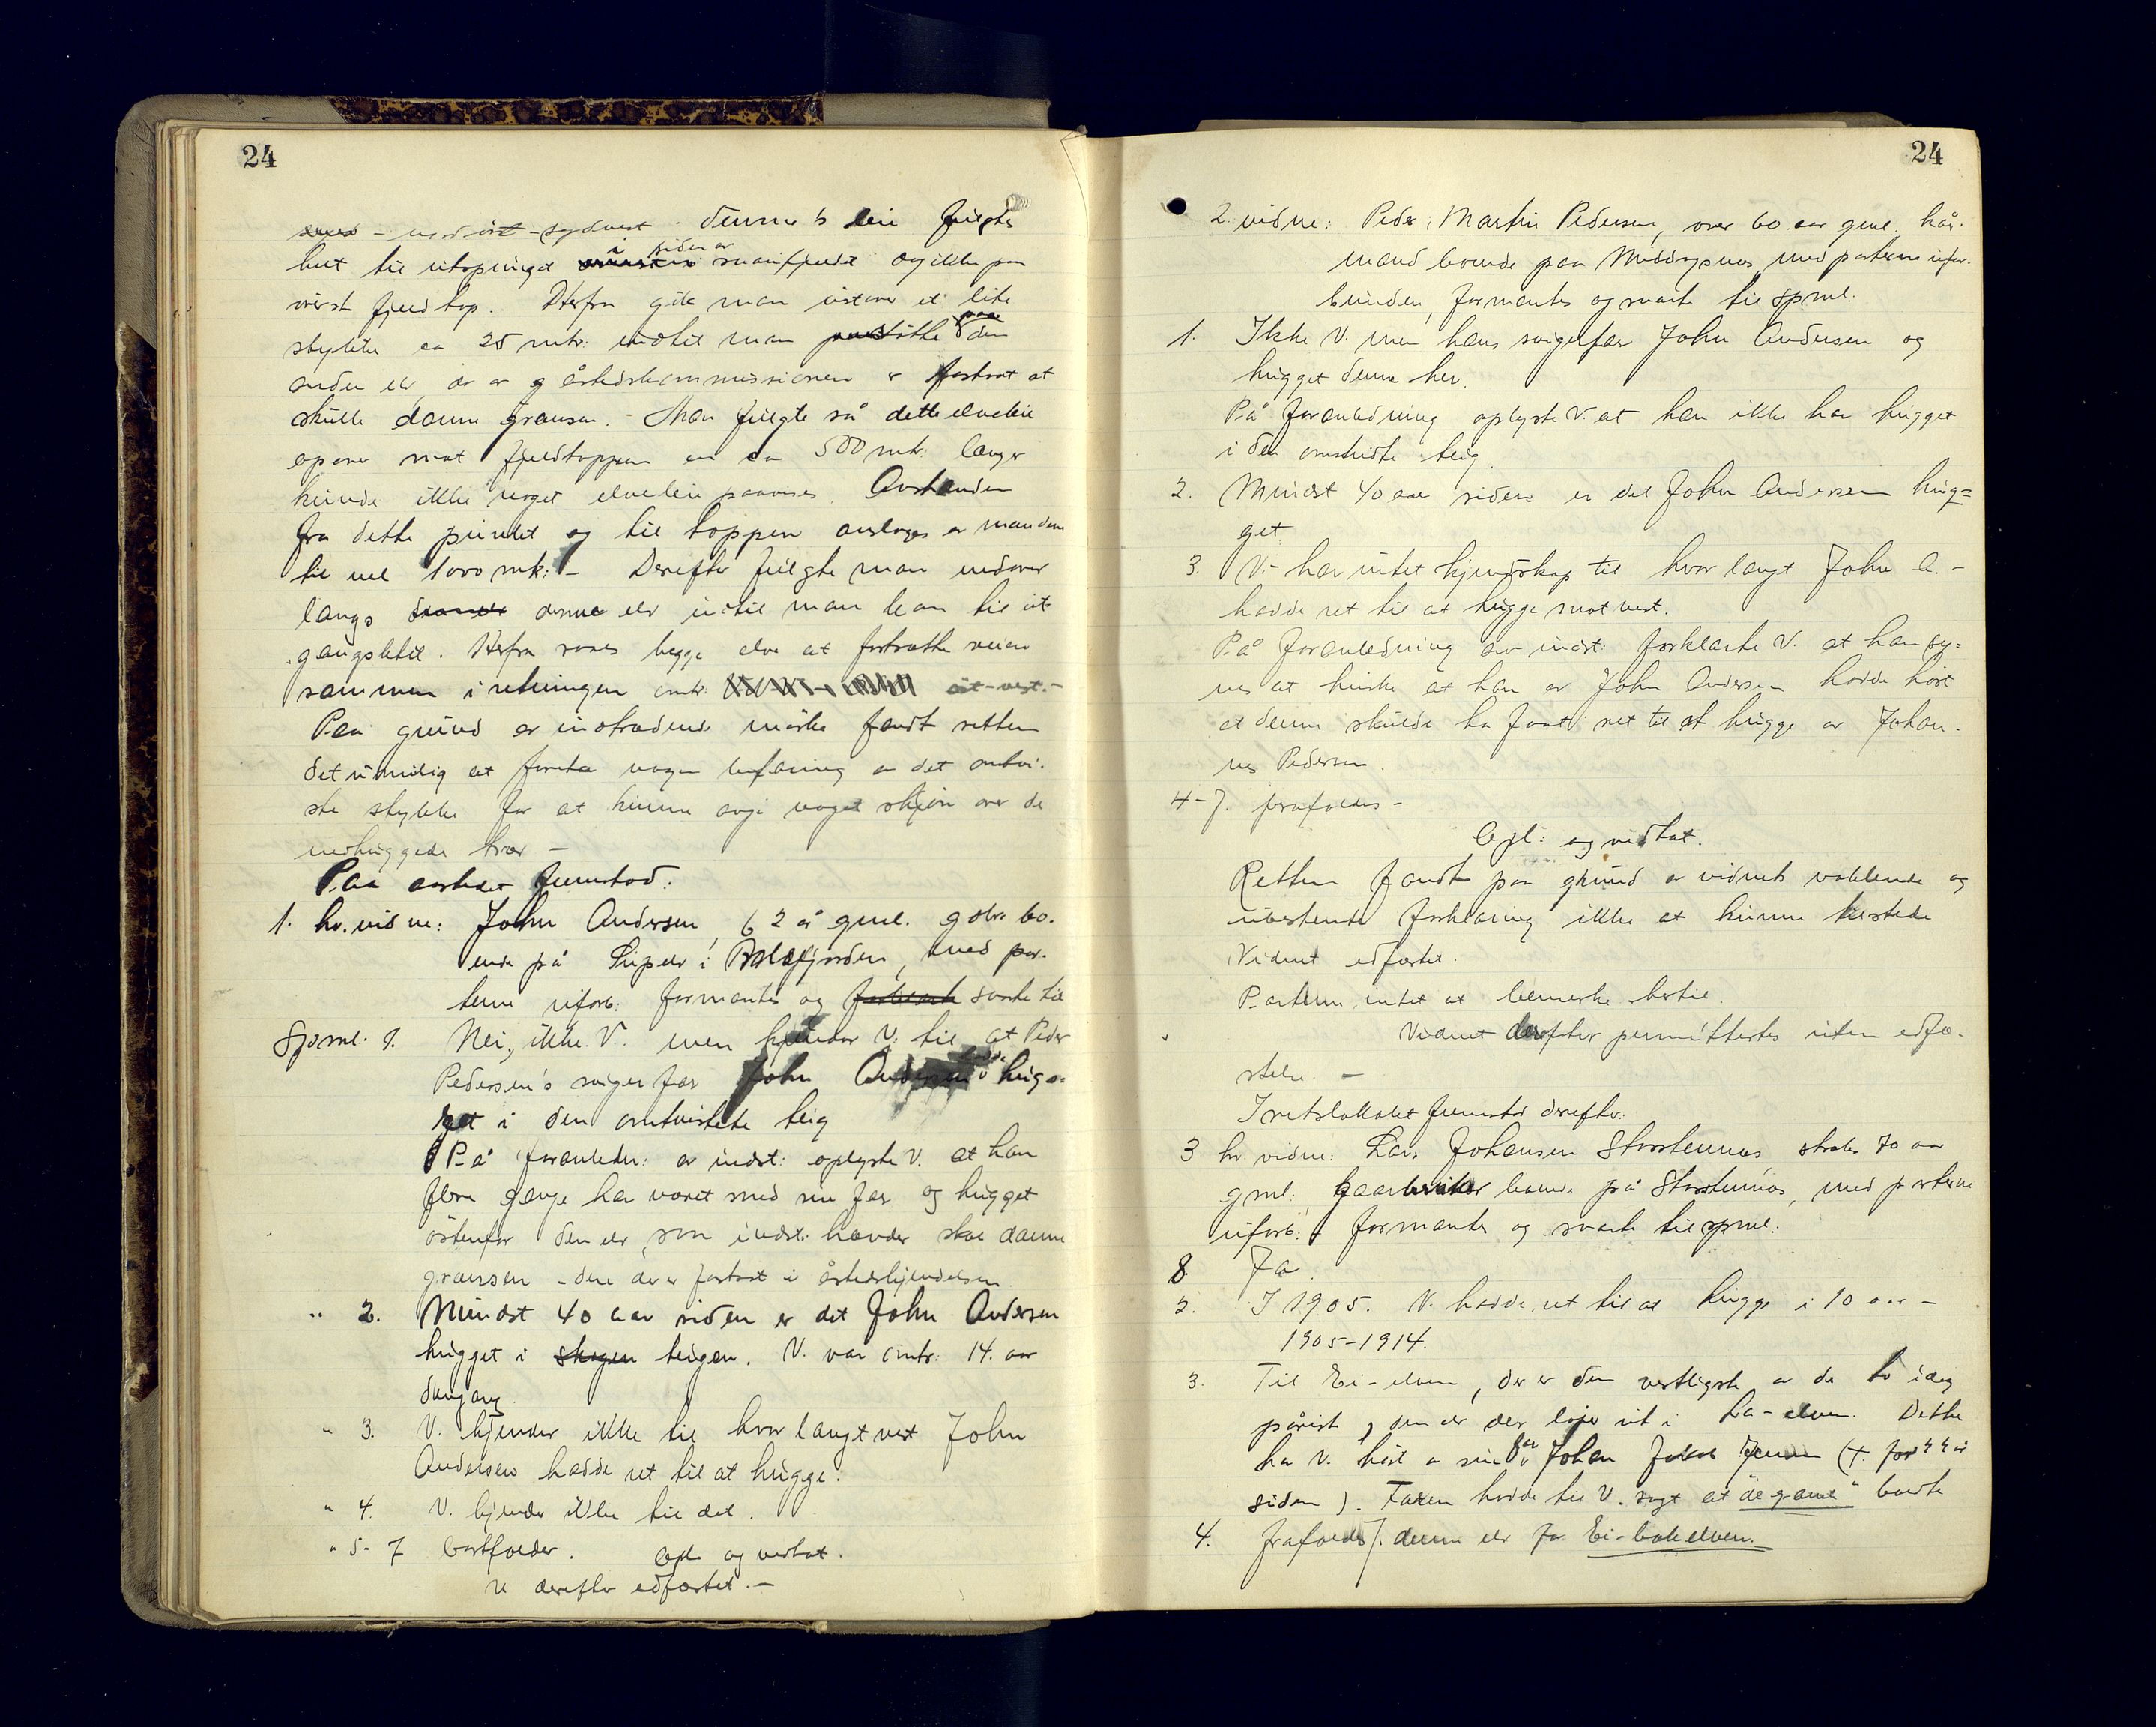 24
nordöst - sydvest. Denne's leie fulgtes
helt til utspringet i siden av snaufjeldet og ikke paa
øverst fjeldtop. Herfra gik man østover et lite
stykke ca 25 mtr. indtil man støtte paa den
anden elv, der av åstedskommissionen er fastsat at
skulle danne grænsen. - Man fulgte så dette elveleie
opover mot fjeldtoppen en ca 500 mtr. Længer
kunde ikke noget elveleie paavises. Avstanden
fra dette punktet og til toppen ansloges av mændene
til vel 1000 mtr. - Derefter fulgte man nedover
langs denne elv indtil man kom til ut-
gangsstedet. Herfra saaes begge elve at fortsætte veien
sammen i retningen omtr. öst-vest. -
Paa grund av indtrædende mörke fandt retten
det umulig at foreta nogen befaring av det omtvi-
ste stykke for at kunne avgi noget skjön over de
nedhuggede trær -
Paa aastedet fremstod:
1. hv. vidne: John Andersen, 62 år gml. gdbr. bo-
ende på i Balsfjorden, med par-
terne uforb. formantes og svarte til
Spsml. 1. Nei, ikke V. men kjender V. til at Peder
Pedersen's svigerfar John Andersen hadde hug-
get i den omtvistede teig
På foranledn. av indst. oplyste V. at han
flere gange har været med sin far og hugget
östenfor den elv, som indst. hævder skal danne
grænsen - den der er fastsat i åstedskjendelsen.
" 2. Mindst 40 aar siden er det John Andersen
hugget i teigen. V. var omtr. 14. aar
dengang
" 3. V. kjender ikke til hvor langt vest John
Andersen hadde ret til at hugge.
" 4. V. kjender ikke til det.
" 5-7 bortfalder. Opl. og vedtat.
V. derefter edfæstet. -
24
2. vidne: Peder Martin Pedersen, over 60 aar gml. går-
mand boende paa med parterne ufor-
bunden, formantes og svarte til spsml:
1. Ikke V. men hans svigerfar John Andersen og
hugget denne her.
På foranledning oplyste V. at han ikke har hugget
i den omstridte teig.
2. Mindst 40 aar siden er det John Andersen hug=
get
3. V. har intet kjendskap til hvor langt John A. -
hadde ret til at hugge mot vest.
På foranledning av indst. forklarte V. at han sy=
nes at huske at han av John Andersen hadde hört
at denne skulde ha faat ret til at hugge av Johan-
nes Pedersen.
4-7. frafaldes -
Opl: og vedtat.
Retten fandt paa grund av vidnets vaklende og
ubestemte forklaring ikke at kunne tilstede
Vidnet edfæstet.
Parterne intet at bemerke hertil.
Vidnet derefter permittertes uten edfæ-
stelse. -
I retslokalet fremstod derefter:
3 hv. vidne: Lars Johansen Storstennes straks 70 aar
gml. gaardbruker boende på Storstennes, med parterne
uforb. formantes og svarte til spsml.
8. Ja.
2. I 1905. V. hadde ret til at hugge i 10 aar -
1905-1914.
3. Til Ei-elven, der er den vestligste av de to idag
påvist, den elv der löper ut i Lå-elven. Dette
har V. hört av sin far Johan Jensen (+. for 44 år
siden). Faren hadde til V. sagt at "de gamle" kaldte
4. frafaldes /. denne elv for Ei-bakelven.